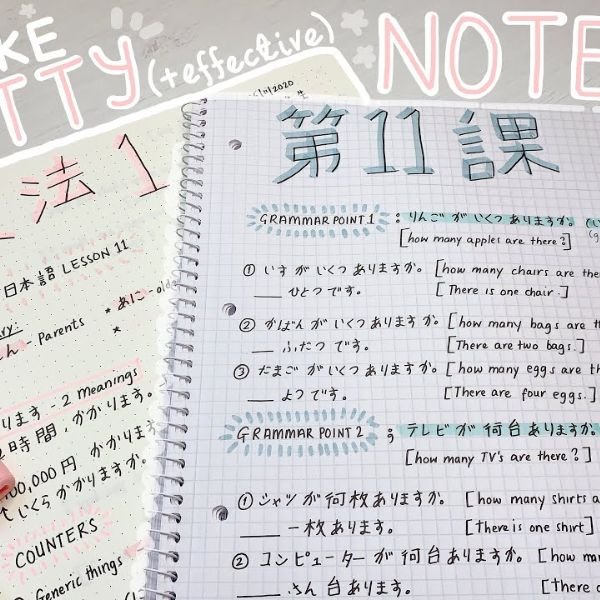 KE
TTY (+effective) NOTE
/11/2020
法1
日本語 LESSON 11
- Parents
*
ります - 2 meanings
時間,かかります。
100,000円 かかります
いくらかかりますか。
COUNTERS
Generic things
第11課
GRAMMAR POINT 1 : りんごがいくつありますか。
[how many apples are there?]
① いすがいくつありますか。 [how many chairs are the
___ ひとつです。 [There is one chair.]
② かばんがいくつありますか。 [how many bags are th
___ ふたつです。 [There are two bags.]
③ たまごがいくつありますか。 [how many eggs are th
___ よつです。 [There are four eggs.]
GRAMMAR POINT 2 ; テレビが何台ありますか。
[how many TV's are there?]
① シャツが何枚ありますか。 [how many shirts a
___ 一枚あります。 [there is one shirt]
② コンピューターが何台ありますか。 [how man
___ さん台あります。 [there a